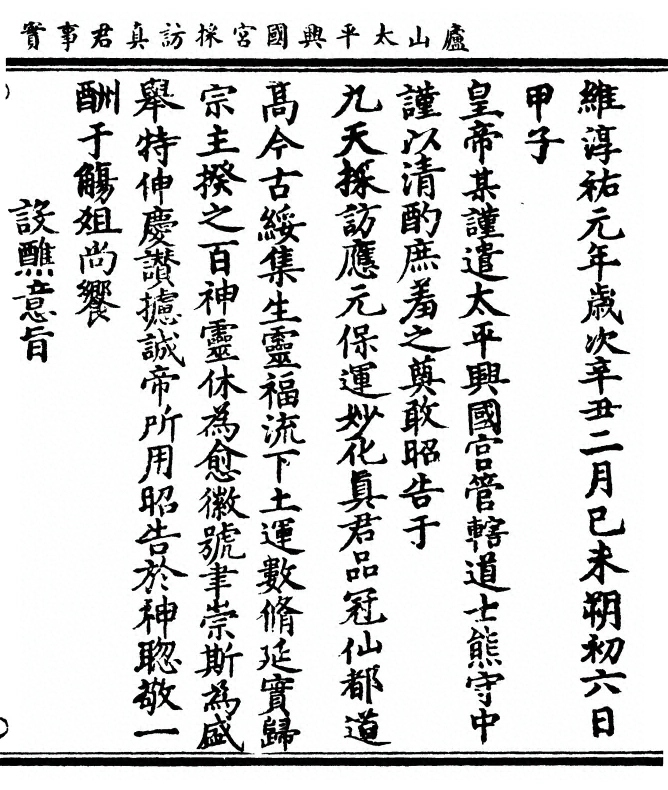 廬山太平興國宮採訪真君事實
維淳祐元年歲次辛丑二月己未朔初六日
甲子
皇帝某謹遣太平興國宮管轄道士熊守中
謹以清酌庶羞之奠敢昭告于
九天採訪應元保運妙化真君品冠仙都道
高今古綏集生靈福流下土運數脩延實歸
宗主揆之百神靈休為愈徽號聿崇斯為盛
舉特伸慶讚攄誠帝所用昭告於神聦敬一
酬于觴俎尚饗
設醮意旨